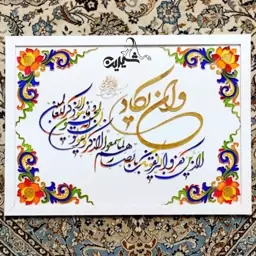 وان یکاد
الذین کفروا لیزلقونک بابصارهم لما سمعوا الذکر و
یقولون انه لمجنون و ما هو الا ذکر للعالمین